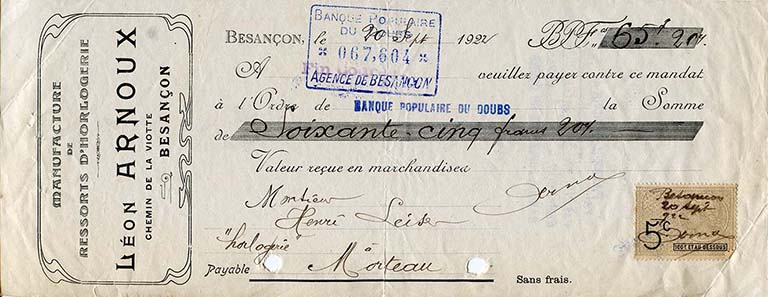 MANUFACTURE
DE
RESSORTS D'HORLOGERIE
LÉON ARNOUX
CHEMIN DE LA VIOTTE
BESANÇON
BESANÇON, le 20 Sept 1922 BPF 65f 20
BANQUE POPULAIRE
DU DOUBS
067,604
AGENCE DE BESANÇON
A veuillez payer contre ce mandat
à l'Ordre de BANQUE POPULAIRE DU DOUBS la Somme
de Soixante-cinq francs 20
Valeur reçue en marchandises
Monsieur
Henri
"horlogerie"
à
Payable Morteau Sans frais.
Besançon
20 Sept
922
5c
100F ET AU-DESSOUS